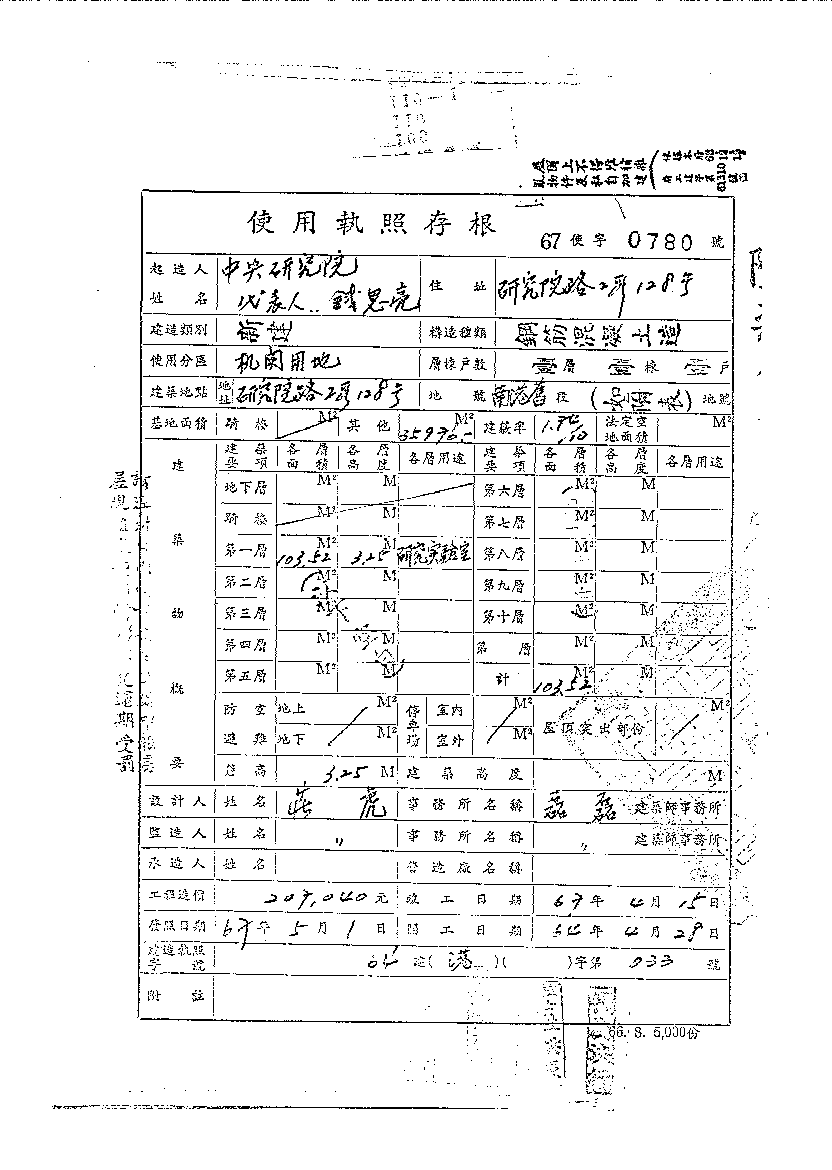 110-1
110
100
使用執照存根
67 使字 0780 號
起造人姓名 中央研究院 代表人：錢思亮 住址 研究院路2段128号
建造類別 新建 構造種類 鋼筋混凝土造
使用分區 机関用地 層棟戶數 壹層 壹棟 壹戶
建築地點 地址 研究院路2段128号 地號 南港舊段 (如附表) 地號
基地面積 騎樓 M² 其他 M² 建蔽率 法定空地面積 M²
建築物概要
建築要項 各層面積 各層高度 各層用途 建築要項 各層面積 各層高度 各層用途
地下層 M² M 第六層 M² M
騎樓 M² M 第七層 M² M
第一層 103.52 M² 3.25 M 研究實驗室 第八層 M² M
第二層 M² M 第九層 M² M
第三層 M² M 第十層 M² M
第四層 M² M 第 層 M² M
第五層 M² M 計 103.52 M² M
防空避難 地上 M² 停車場 室內 M² 屋頂突出部份 M²
地下 M² 室外 M²
簷高 3.25 M 建築高度 M
設計人 姓名 莊虎 事務所名稱 磊磊 建築師事務所
監造人 姓名 〃 事務所名稱 〃 建築師事務所
承造人 姓名 營造廠名稱
工程造價 207,040元 竣工日期 67年4月15日
發照日期 67年5月1日 開工日期 64年4月28日
建造執照字號 64 建(港)( )字第 033 號
附註
66. 8. 5,000份